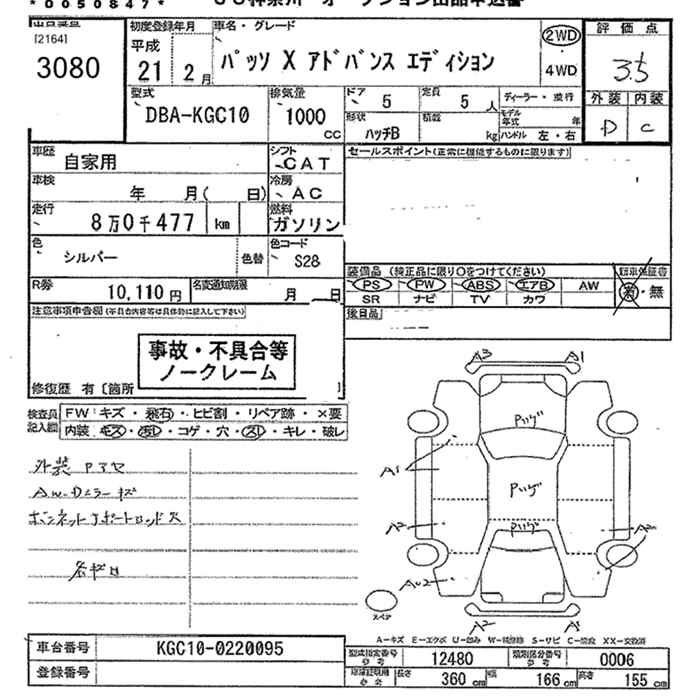 *0050847*
[2164]
3080
初度登録年月
平成
21 2月
車名・グレード
パッソ X アドバンス エディション
2WD
4WD
評価点
3.5
外装 内装
D C
型式
DBA-KGC10
排気量
1000
CC
ドア 5
定員 5 人
ディーラー・並行
形状 ハッチB
積載 kg
モデル年式 年
ハンドル 左・右
車歴 自家用
シフト CAT
車検 年 月( 日)
冷房 AC
走行 8万0千477 km
燃料 ガソリン
色 シルバー 色替
色コード S28
R券 10,110円
名変通知期限 月 日
セールスポイント(正常に機能するものに限ります)
装備品 (純正品に限り○をつけてください)
PS PW ABS エアB AW
SR ナビ TV カワ
新車保証書
有・無
後日品
注意事項申告欄(不具合内容等は具体的に記入して下さい)
事故・不具合等
ノークレーム
修復歴 有〔箇所
検査員記入欄
FW キズ・飛石・ヒビ割・リペア跡・X要
内装 キズ・汚レ・コゲ・穴・スレ・キレ・破レ
A3 A1
Pハゲ
A1
Pハゲ
A2
Pハゲ
AU2
A2
スペア
A-キズ E-エクボ U-凹み W-補修跡 S-サビ C-腐食 XX-交換済
車台番号 KGC10-0220095
登録番号
型式指定番号 参考 12480
類別区分番号 参考 0006
参考 長さ 360 cm 幅 166 cm 高さ 155 cm